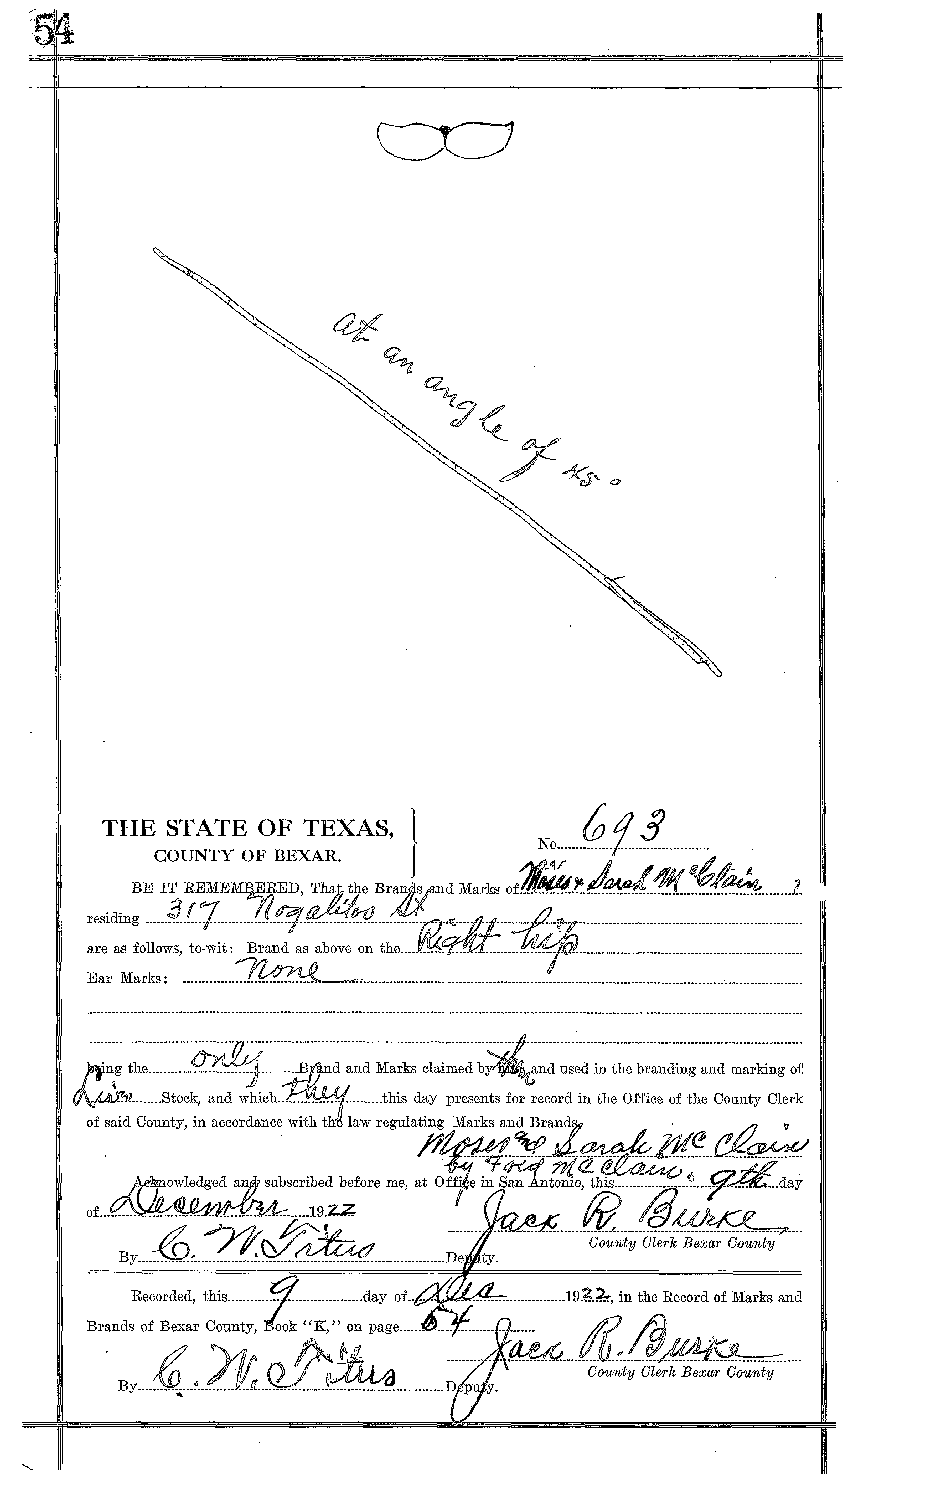 54
at an angle of 45°
THE STATE OF TEXAS,
COUNTY OF BEXAR.
No. 693
BE IT REMEMBERED, That the Brands and Marks of Moses & Sarah McClain
residing 317 Nogalitos St
are as follows, to-wit: Brand as above on the Right hip
Ear Marks: None
being the only Brand and Marks claimed by them and used in the branding and marking of
Live Stock, and which they this day presents for record in the Office of the County Clerk
of said County, in accordance with the law regulating Marks and Brands.
Moses and Sarah McClain
by Ford McClain.
Acknowledged and subscribed before me, at Office in San Antonio, this 9th day
of December 1922
Jack R. Burke,
County Clerk Bexar County
By C. W. Titus Deputy.
Recorded, this 9 day of Dec 1922, in the Record of Marks and
Brands of Bexar County, Book "K," on page 54
Jack R. Burke
County Clerk Bexar County
By C. W. Titus Deputy.